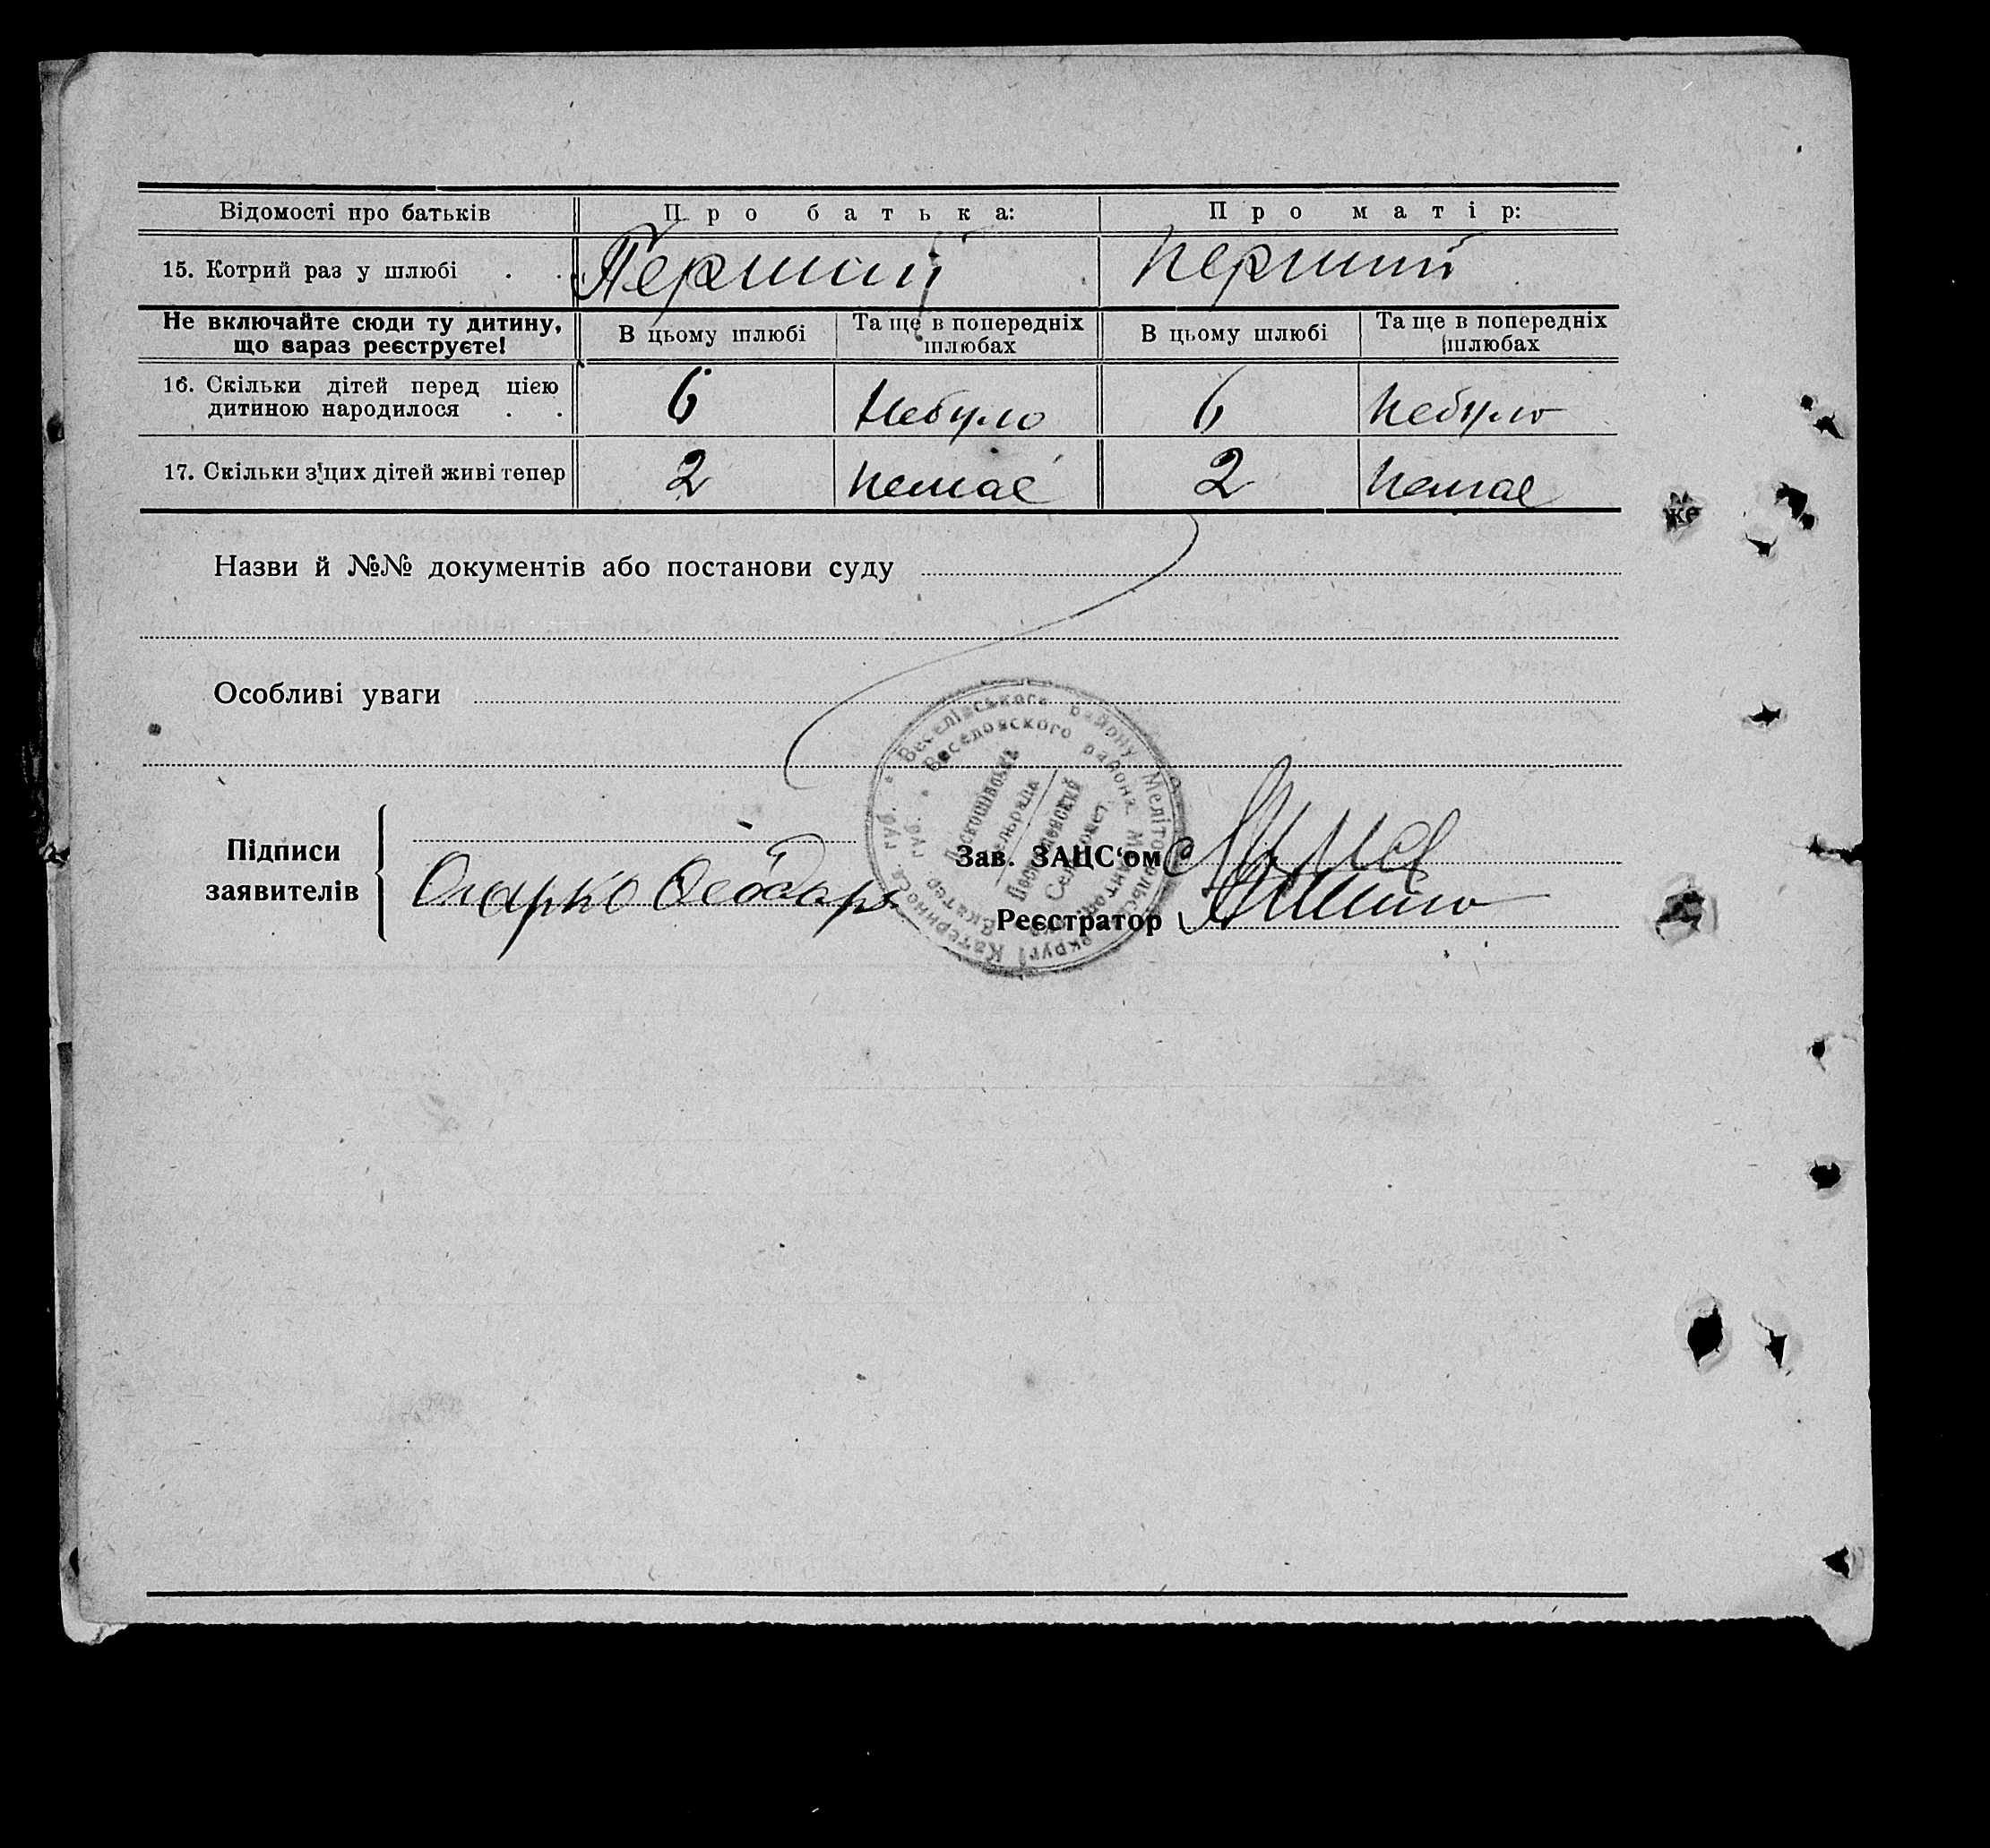 Відомості про батьків Про батька: Про матір:
15. Котрий раз у шлюбі . . Перший перший
Не включайте сюди ту дитину, що зараз реєструєте! В цьому шлюбі Та ще в попередніх шлюбах В цьому шлюбі Та ще в попередніх шлюбах
16. Скільки дітей перед цією
дитиною народилося . . 6 небуло 6 небуло
17. Скільки з цих дітей живі тепер 2 немає 2 немає
же
Назви й №№ документів або постанови суду
Особливі уваги
Веселівського району Мелітопольськ. округі Катериносл. губ.
Веселовского района Екатер. губ.
Сельсовет
Підписи
заявителів
Зав. ЗАЦС‘ом
Реєстратор